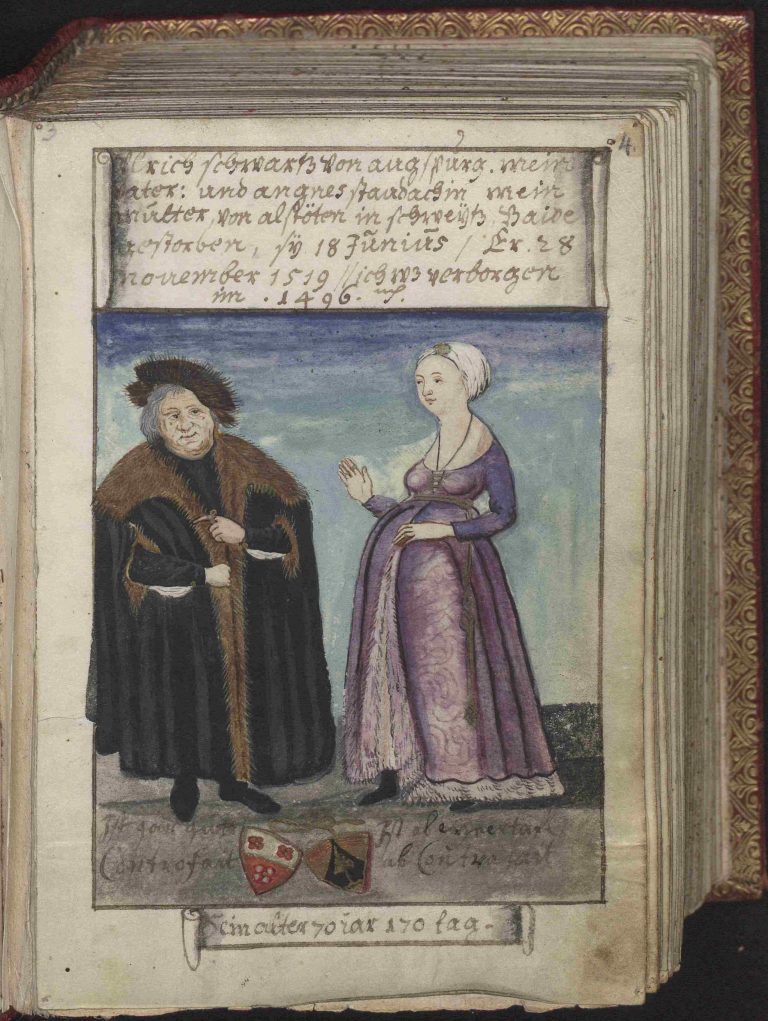 3
4.
Ulrich schwartz von augspurg. mein
vater: und angnes staudachin mein
muͤtter, von alstöten in schweÿtz, Baide
gestorben, sÿ 18 Jūniūs / Er. 28
november 1519 // ich wz verborgen
im . 1496.
Ist gar gutt
Controfatt
Ist
ab Coūtrofatt
Sein alter 70 iar 170 tag.
4